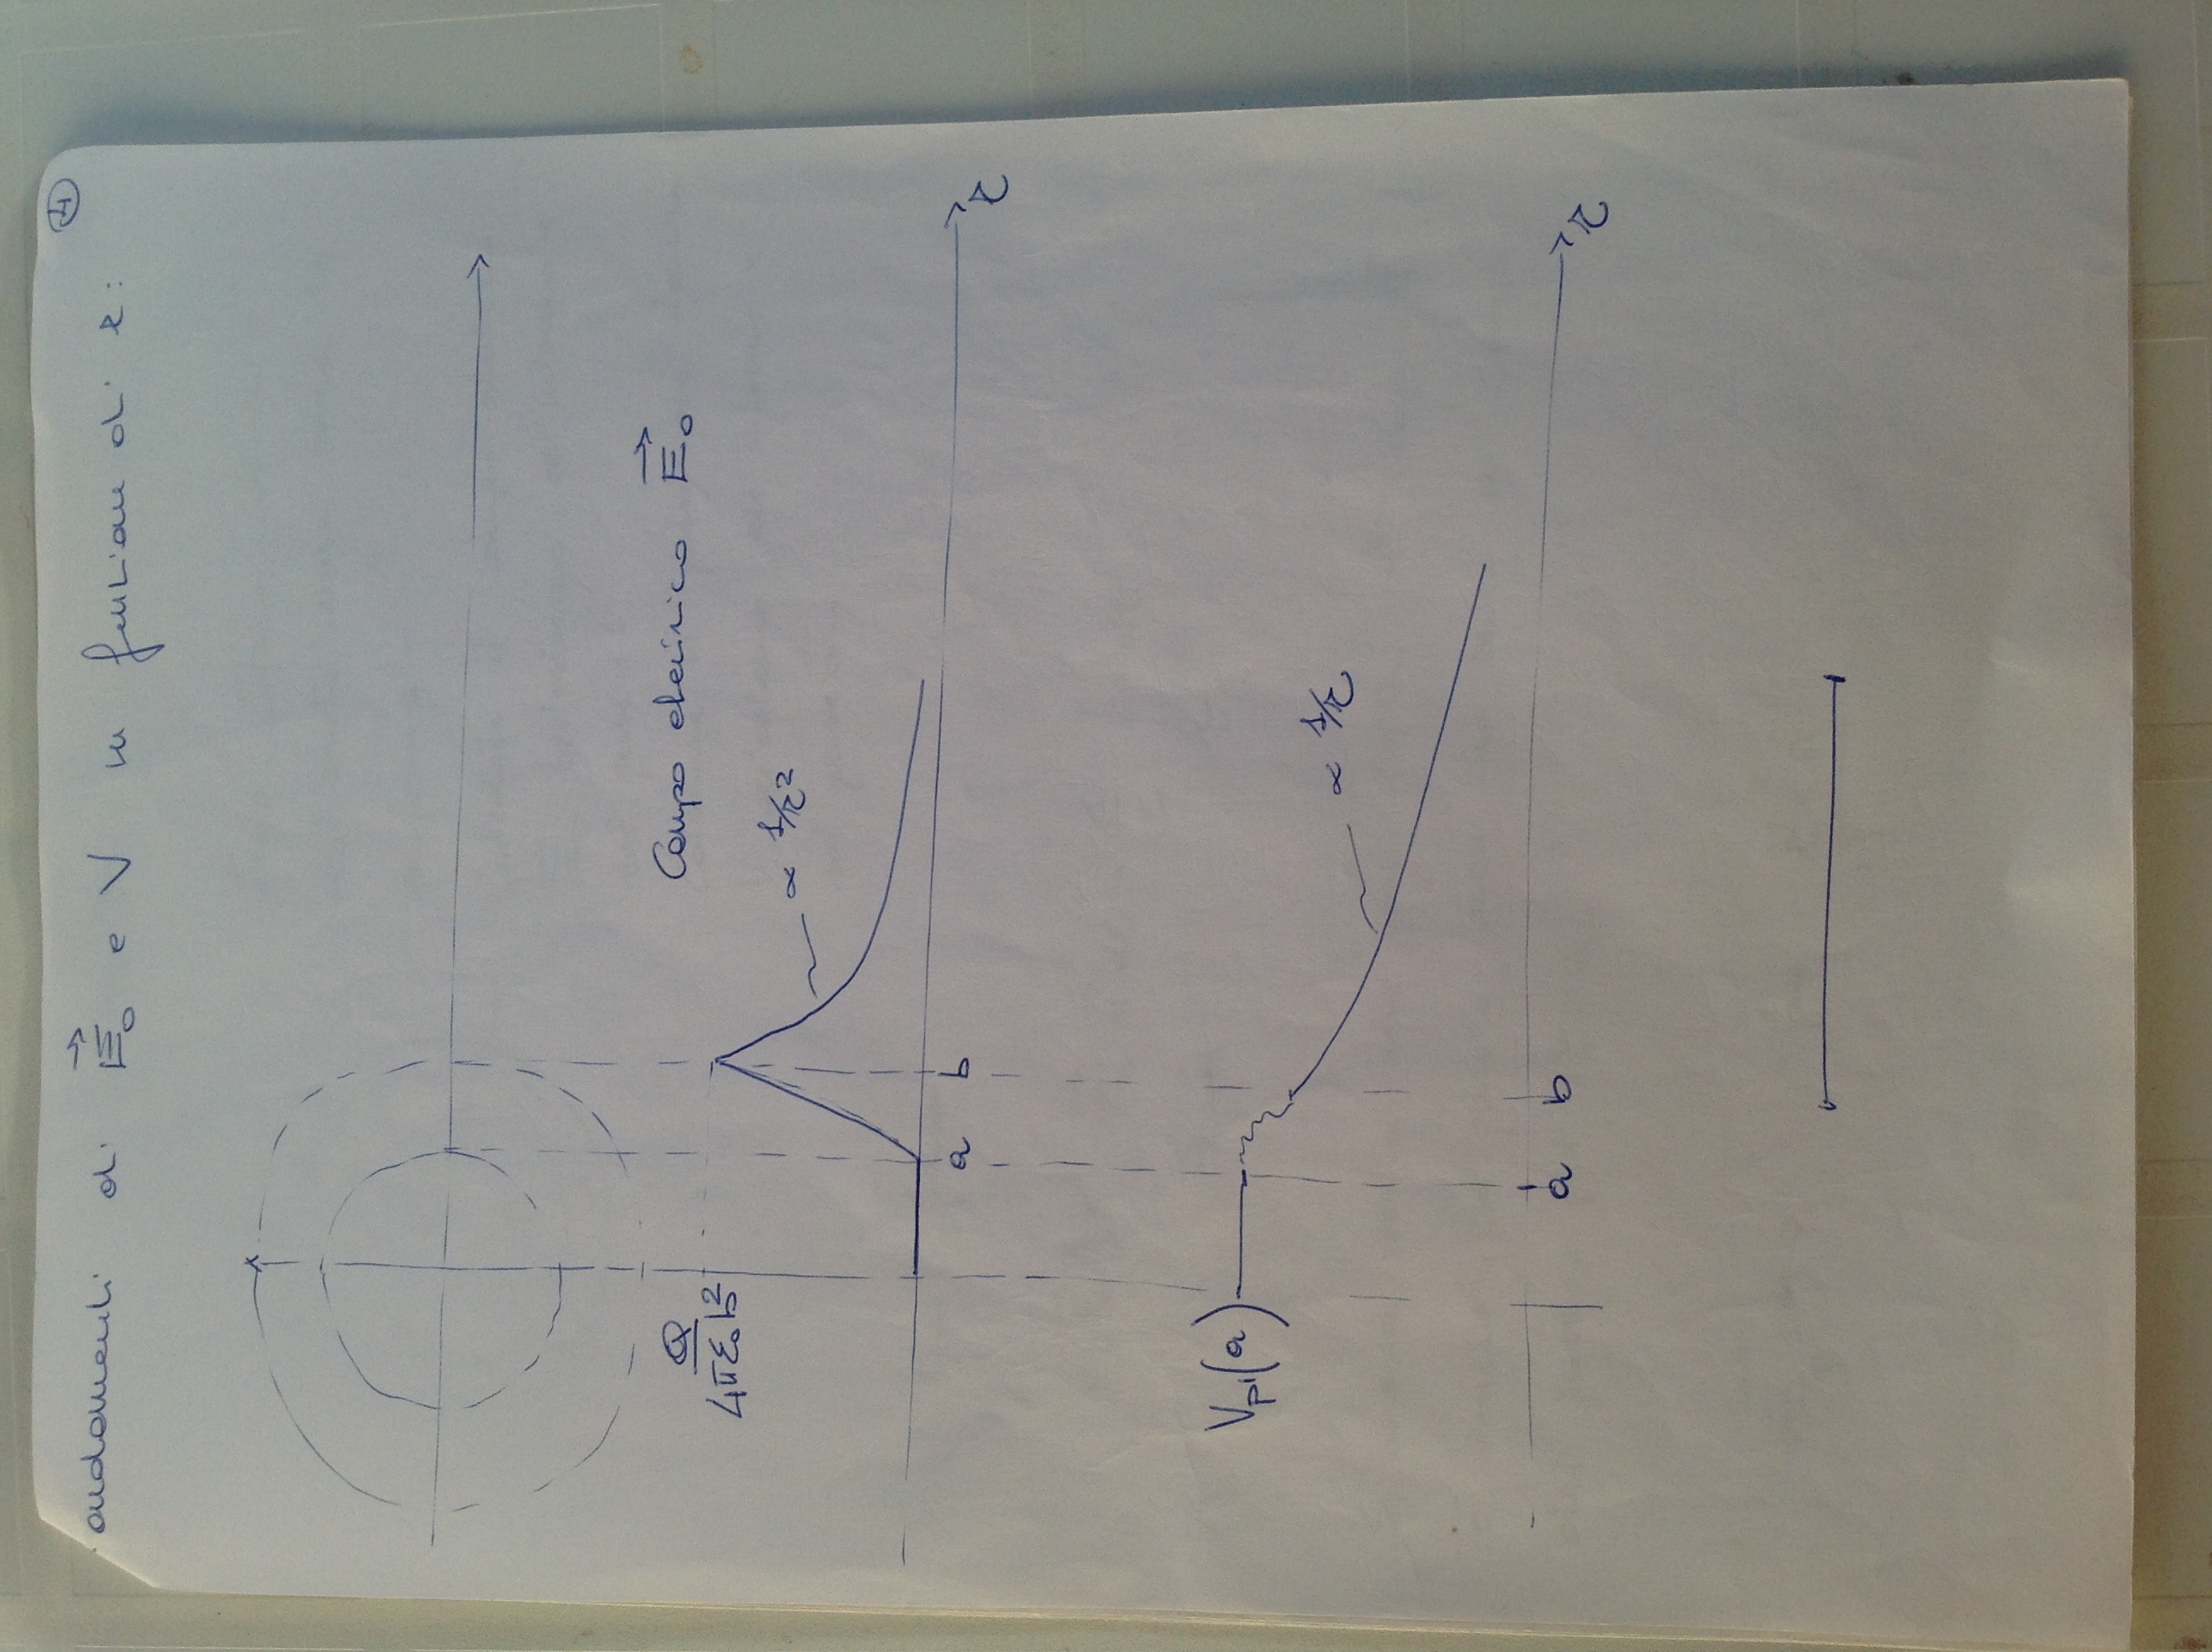 4
andamenti di E⃗₀ e V in funzione di r:
Q
4πε₀b²
Campo elettrico E⃗₀
∝ 1/r²
a b
r
Vpi(a)
∝ 1/r
a b
r